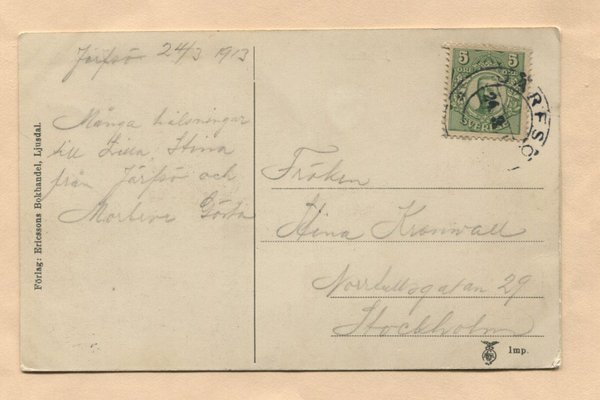 Järfsö 24/3 1913
Många hälsningar
till Lilla Stina
från Järfsö och
Gösta
Förlag: Ericssons Bokhandel, Ljusdal.
5 5
SVERIGE
24.3
Fröken
Stina Kronwall
Norrtullsgatan 29
Stockholm
Imp.